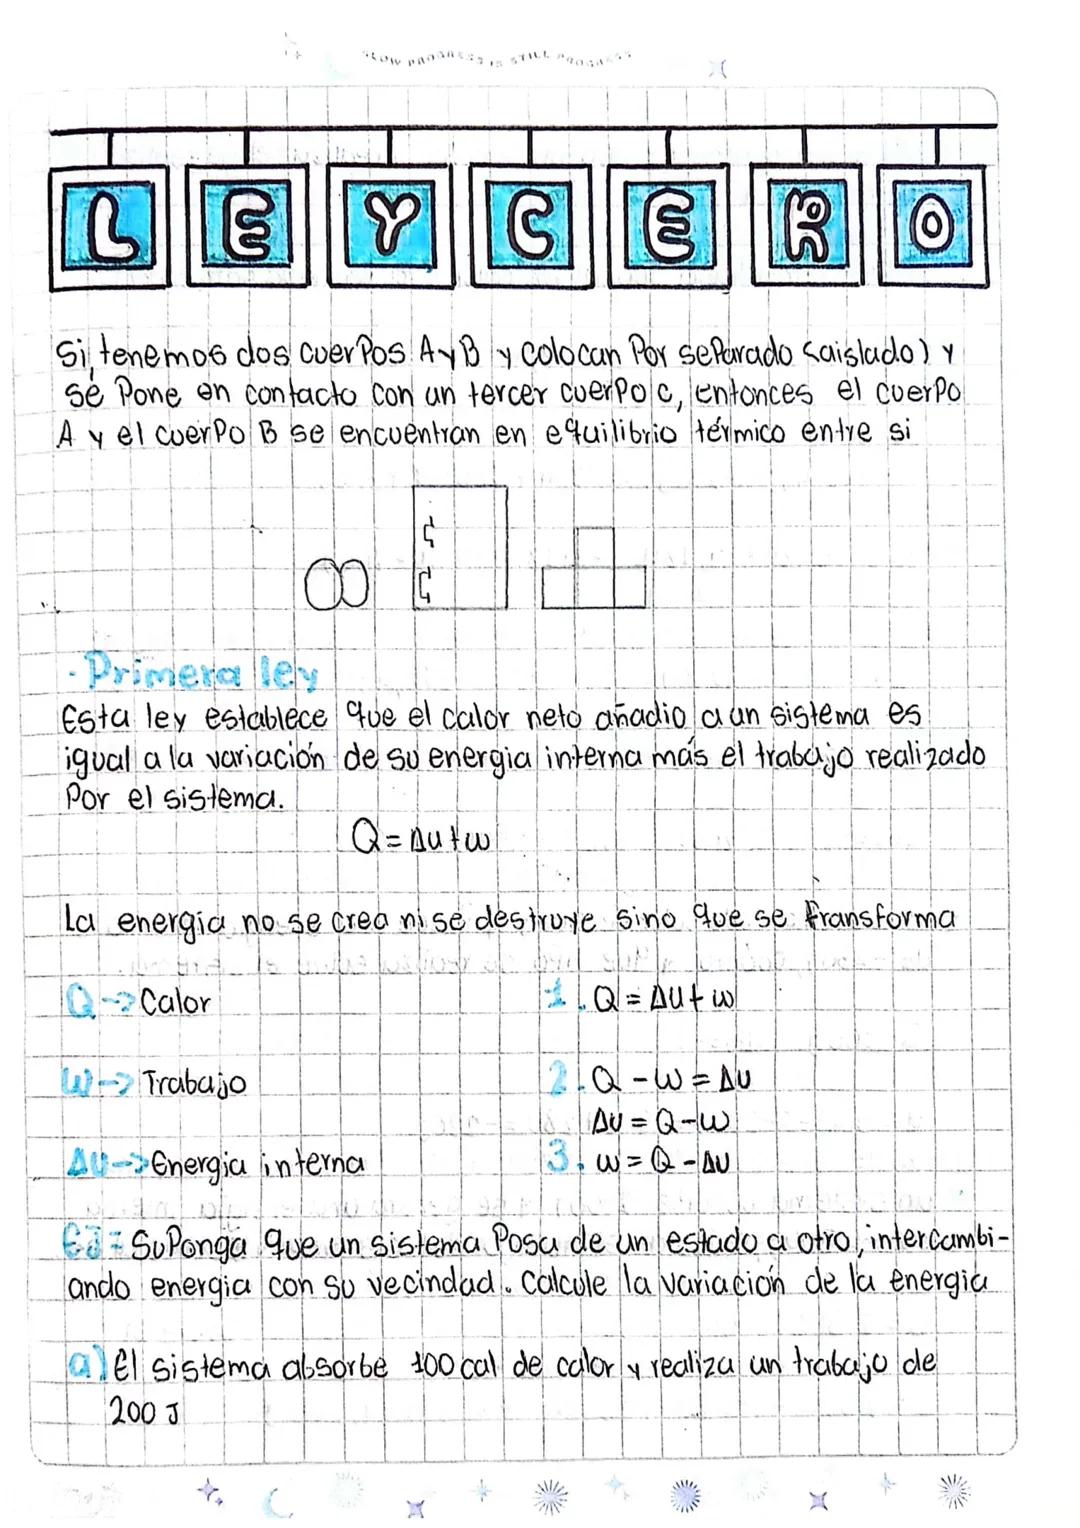 SLOW PROGRESS IS STILL PROGRESS
LEY CERO
Si tenemos dos cuerpos A y B y colocan por separado (aislado) y
se pone en contacto con un tercer cuerpo c, entonces el cuerpo
A y el cuerpo B se encuentran en equilibrio térmico entre si
· Primera ley
Esta ley establece que el calor neto añadio a un sistema es
igual a la variación de su energia interna más el trabajo realizado
por el sistema.
Q = Δu + w
La energia no se crea ni se destruye sino que se transforma
Q → Calor
1. Q = ΔU + w
W → Trabajo
2. Q - W = ΔU
ΔU = Q - W
ΔU → Energia interna
3. w = Q - ΔU
Ej = Suponga que un sistema posa de un estado a otro, intercambi-
ando energia con su vecindad. Calcule la variación de la energia
a) El sistema absorbe 100 cal de calor y realiza un trabajo de
200 J